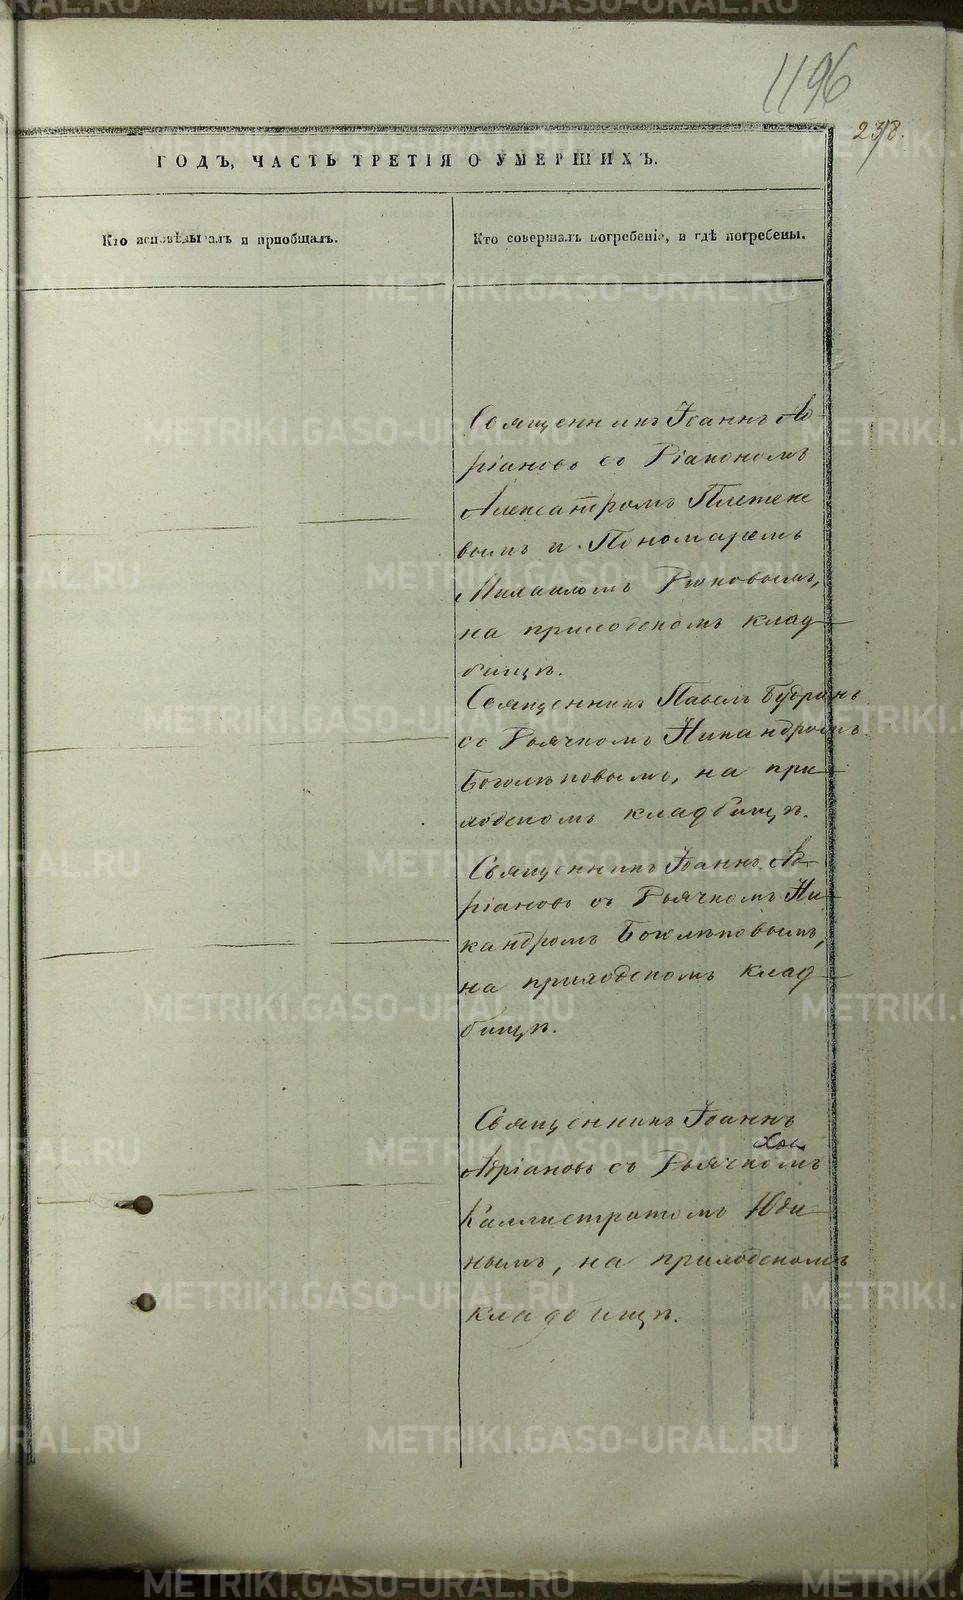 1196
238.
ГОДЪ, ЧАСТЬ ТРЕТІЯ О УМЕРШИХЪ.
Кто исповѣдывалъ и пріобщалъ.
Кто совершалъ погребеніе, и гдѣ погребены.
Священникъ Іоаннъ Ад-
ріановъ съ Діакономъ
Александромъ Плетене
вымъ и Пономаремъ
Михаиломъ
на приходскомъ клад-
бищѣ.
Священникъ Павелъ Будринъ
съ Дьячкомъ Никандромъ
Боголѣповымъ, на при-
ходскомъ кладбищѣ.
Священникъ Іоаннъ Ад-
ріановъ съ Дьячкомъ Ни-
кандромъ Боголѣповымъ,
на приходскомъ клад-
бищѣ.
Священникъ Іоаннъ
Адріановъ съ Дьячкомъ
Каллистратомъ Юди-
нымъ, на приходскомъ
кладбищѣ.
METRIKI.GASO-URAL.RU